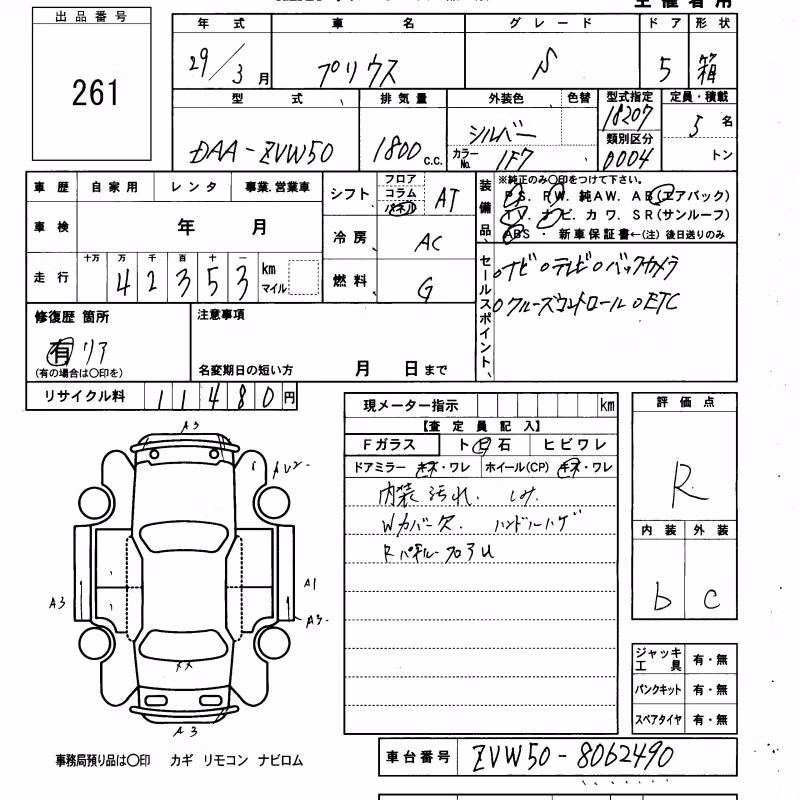 主催者用
出品番号
261
年式 車名 グレード ドア 形状
29/3月 プリウス S 5 箱
型式 排気量 外装色 色替 型式指定 定員・積載
DAA-ZVW50 1800c.c. シルバー カラーNo. 1F7 18207 類別区分 0004 5名 トン
車歴 自家用 レンタ 事業.営業車
車検 年 月
走行 十万 万 千 百 十 一
42353 km マイル
シフト フロア コラム パネル AT
冷房 AC
燃料 G
装備品、
※純正のみ〇印をつけて下さい。
PS. PW. 純AW. AB(エアバック)
TV. ナビ. カワ. SR(サンルーフ)
ABS ・ 新車保証書←(注) 後日送りのみ
セールスポイント、
○ナビ○テレビ○バックカメラ
○クルーズコントロール○ETC
修復歴 箇所
有 リア
(有の場合は〇印を)
注意事項
名変期日の短い方 月 日まで
リサイクル料 11480円
現メーター指示 km
【査定員記入】
Fガラス ト ビ 石 ヒビワレ
ドアミラー キズ・ワレ ホイール(CP) キズ・ワレ
内装汚れ. シミ.
Wカバー欠. ハンドルハゲ
評価点
R
内装 外装
b c
ジャッキ工具 有・無
パンクキット 有・無
スペアタイヤ 有・無
A3
A3
A1
A3
A3
事務局預り品は〇印 カギ リモコン ナビロム
車台番号 ZVW50-8062490